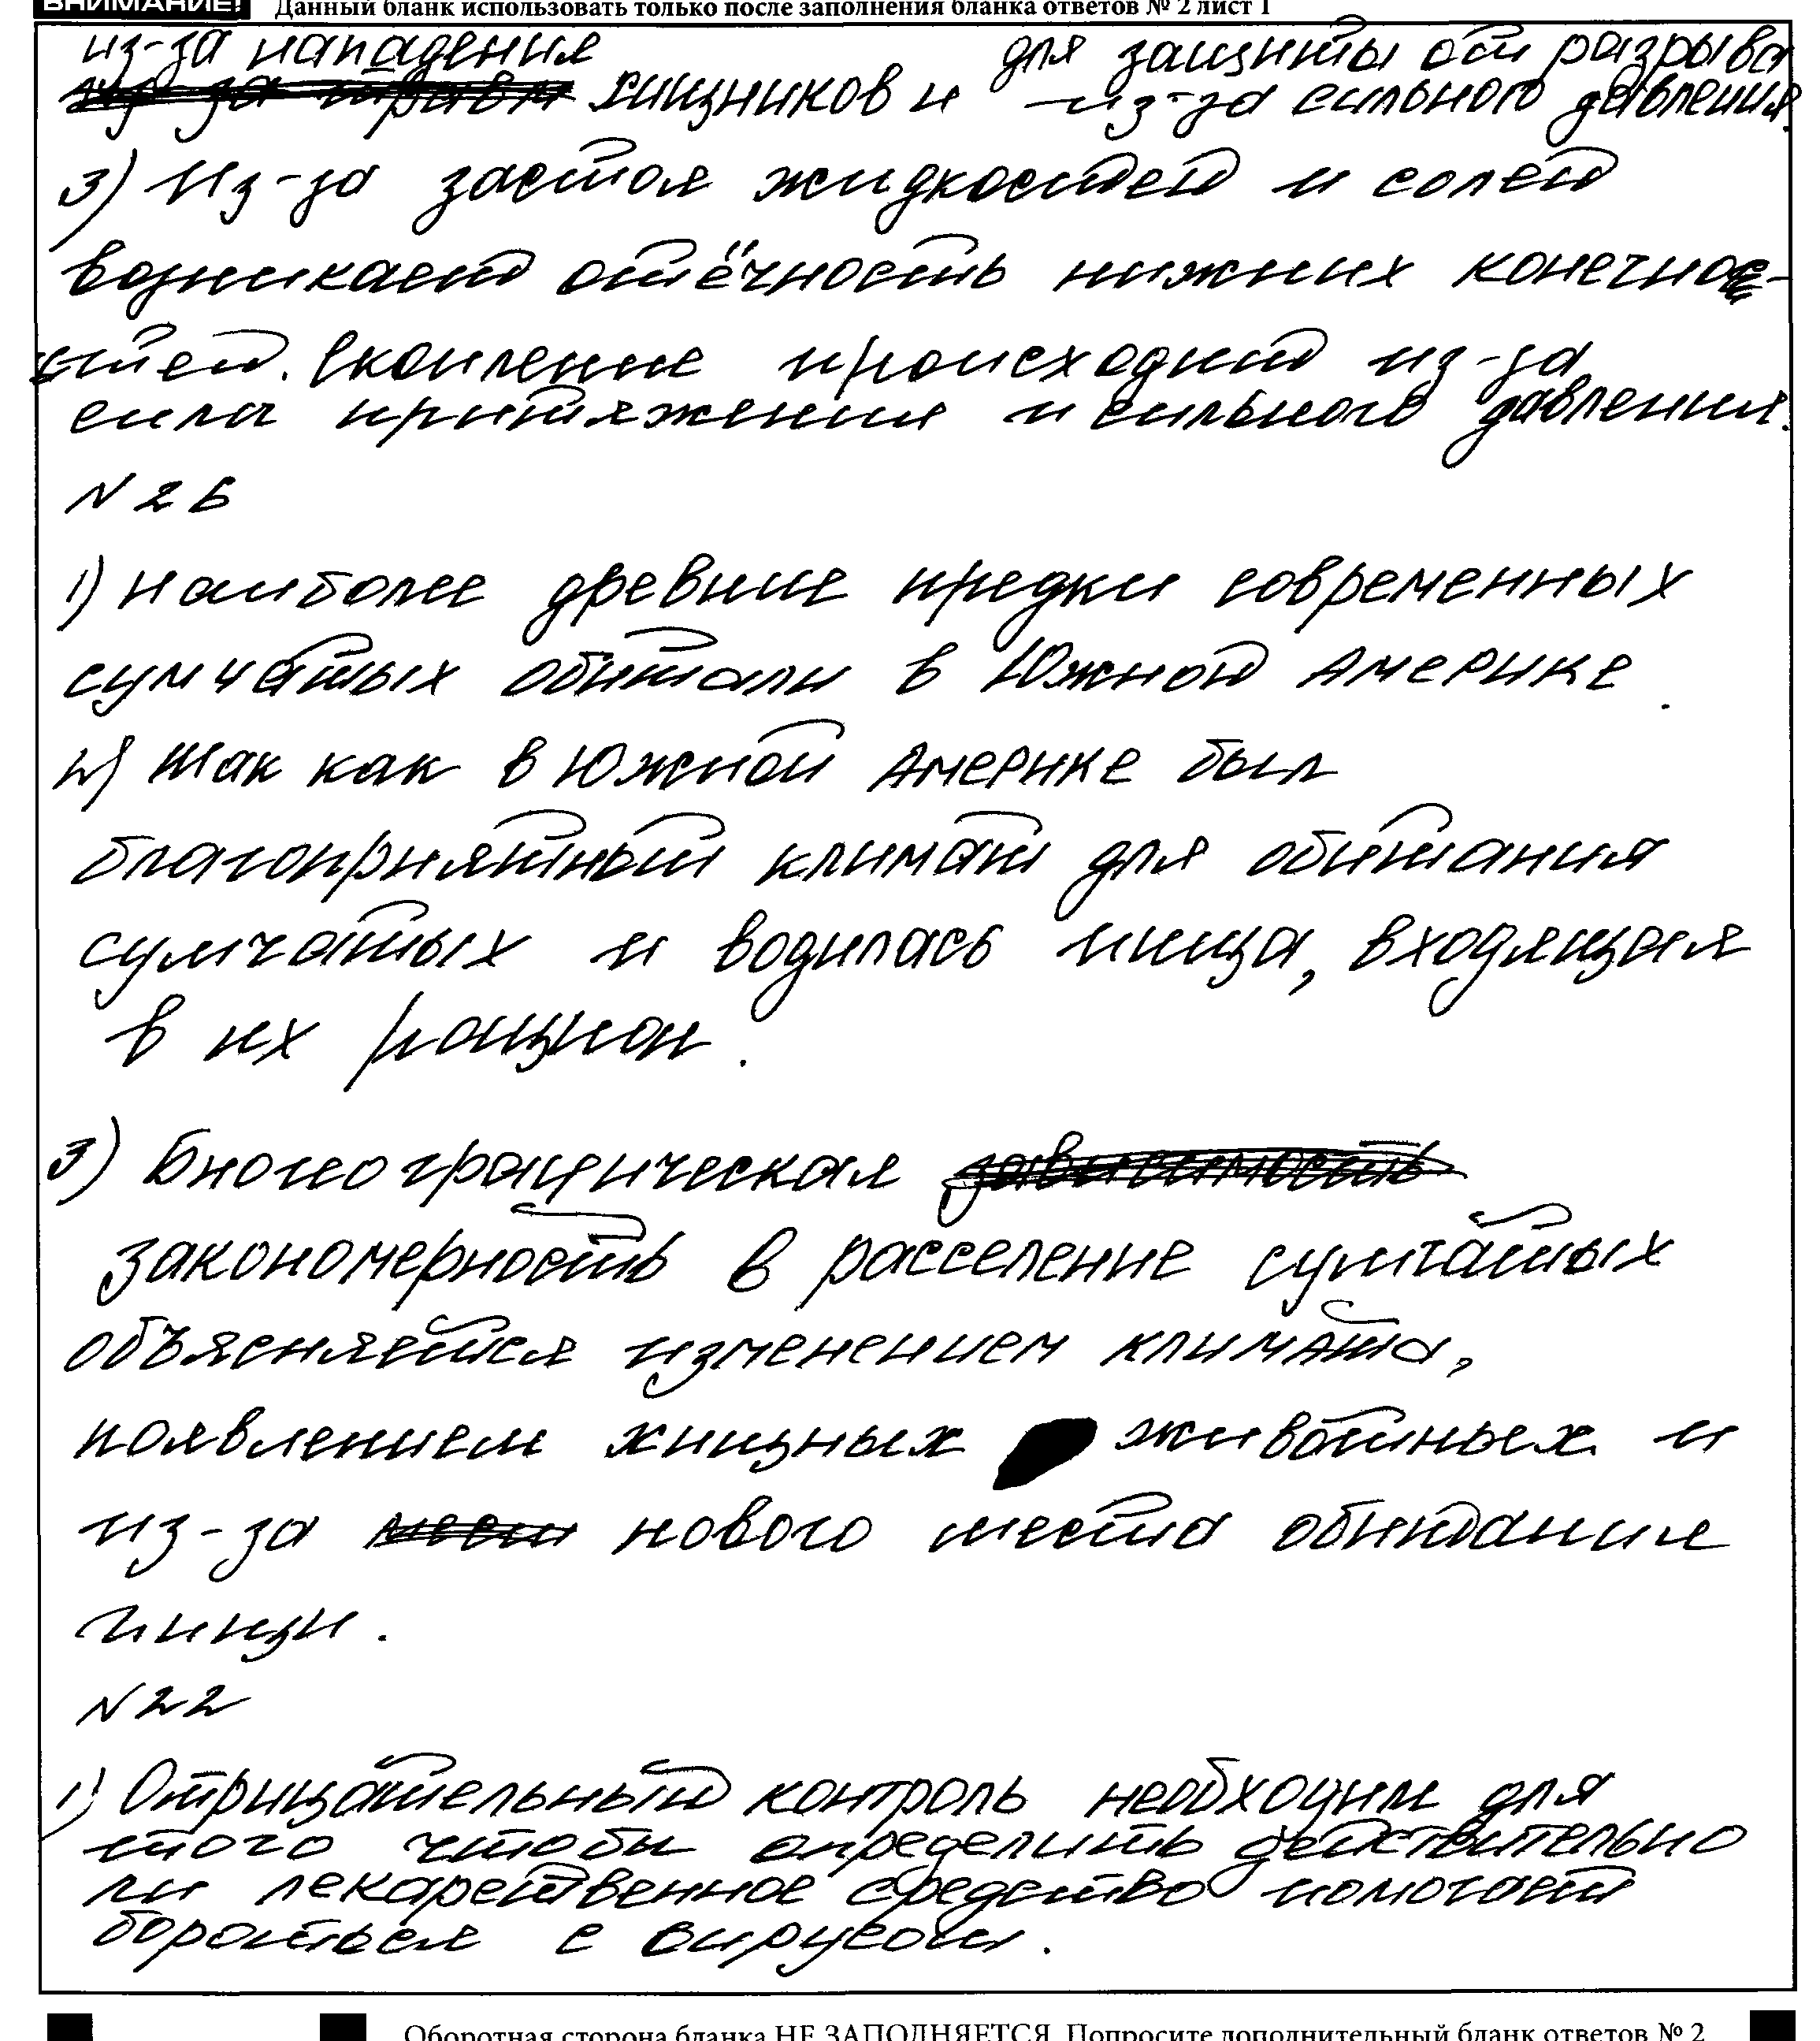 ВНИМАНИЕ! Данный бланк использовать только после заполнения бланка ответов № 2 лист 1
из-за нападения для защиты от разрыва
хищников и из-за сильного давления.
3) Из-за застоя жидкостей и солей
возникает отёчность нижних конечнос-
тей. Скопление происходит из-за
сила притяжения и сильного давления.
N26
1) Наиболее древние предки современных
сумчатых обитали в Южной Америке.
2) Так как в Южной Америке был
благоприятный климат для обитания
сумчатых и водилась пища, входящая
в их рацион.
3) Биогеографическая зависимость
закономерность в расселение сумчатых
объясняется изменением климата,
появлением хищных животных и
из-за мест нового места обитание
пищи.
N22
1) Отрицательный контроль необходим для
того чтобы определить действительно
ли лекарственное средство помогает
бороться с вирусом.
Оборотная сторона бланка НЕ ЗАПОЛНЯЕТСЯ. Попросите дополнительный бланк ответов № 2